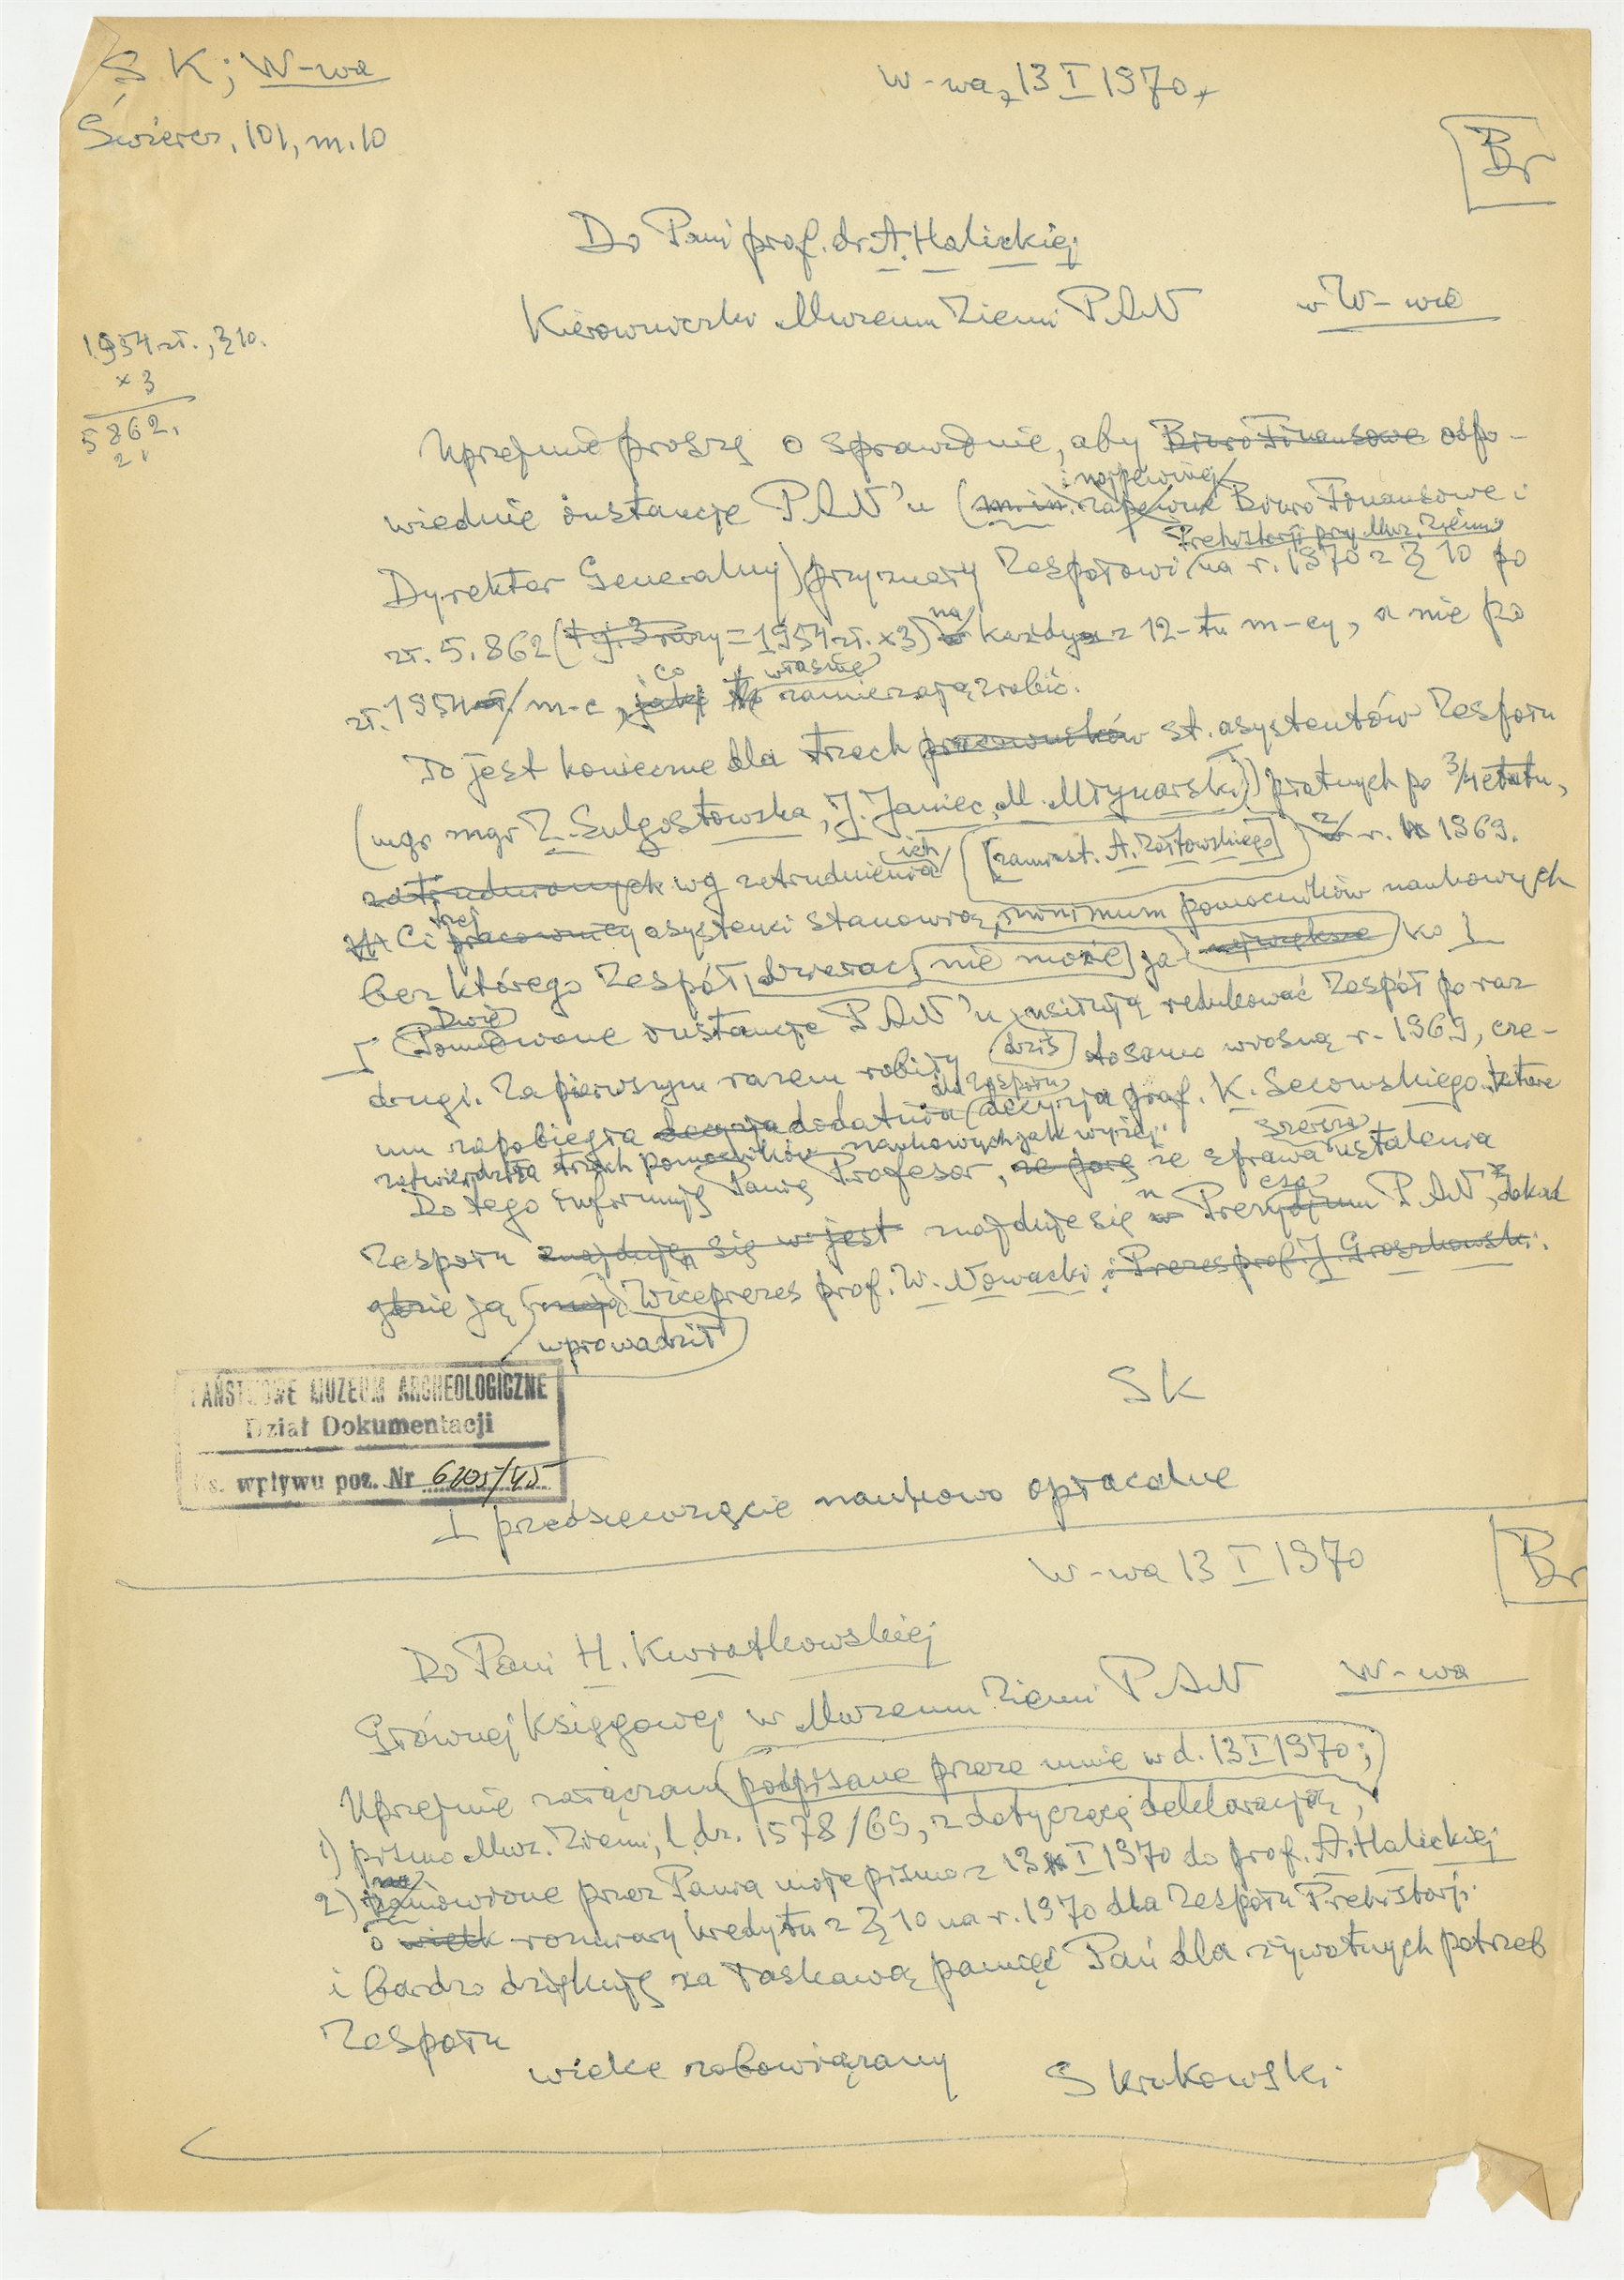 S K; W-wa
Świercz. 101, m. 10
W-wa, 13 I 1970,
Br
Do Pani prof. dr A. Halickiej
Kierowniczki Muzeum Ziemi PAN w W-wie
1954 zł., § 10.
x 3
5862.
Uprzejmie proszę o sprawdzenie, aby Biuro Finansowe odpo-
i najpewniej
wiednie instancje PAN'u (m.in. zapewne Biuro Finansowe i
Prehistorji przy Muz. Ziemi
Dyrektor Generalny) przyznały Zespołowi na r. 1970 z § 10 po
zł. 5.862 (tj. 3 razy = 1954 zł. x 3) na każdy z 12-tu m-cy, a nie po
co właśnie
zł. 1954 / m-c, zamierzają zrobić.
To jest konieczne dla trzech pracowników st. asystentów Zespołu
(mgr mgr Z. Sulgostowska, J. Janiec, M. Młynarski) płatnych po 3/4 etatu,
ich
zatrudnionych wg zatrudnienia [zamiast. A. Żółtowskiego] z r. 1969.
trzej
Ci pracownicy asystenci stanowią minimum pomocników naukowych
bez którego Zespół, działać nie może ja największe ko I
Dwie
Pomówione instancje PAN'u usiłują redukować Zespół po raz
drugi. Za pierwszym razem robiły dziś to samo wiosną r. 1969, cze-
dla Zespołu
mu zapobiegła decyzja dodatnia decyzja prof. K. Secomskiego, które
zatwierdziła trzech pomocników naukowych jak wyżej.
szersza
Do tego informuję Panią Profesor, że sprawa ustalenia
Zespołu znajduje się w jest znajduje się u Prezydium PAN, dokąd
gdzie ją mają Wiceprezes prof. W. Nowacki i Prezes prof. J. Groszkowski.
wprowadził
SK
PAŃSTWOWE MUZEUM ARCHEOLOGICZNE
Dział Dokumentacji
Ks. wpływu poz. Nr 6205/45
I przedsięwzięcie naukowo opłacalne
W-wa 13 I 1970
Br
Do Pani H. Kwiatkowskiej
Głównej Księgowej w Muzeum Ziemi PAN W-wa
Uprzejmie załączam podpisane przeze mnie w d. 13 I 1970;
1) pismo Muz. Ziemi, l. dz. 1578/69, z dotyczącą deklaracją,
2) zamówione przez Panią moje pismo z 13 I 1970 do prof. A. Halickiej
o rozmiary kredytu z § 10 na r. 1970 dla Zespołu Prehistorji
i bardzo dziękuję za łaskawą pamięć Pań dla żywotnych potrzeb
Zespołu
wielce zobowiązany S Krukowski